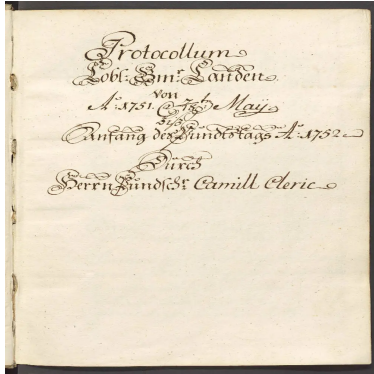 Protocollum
Lobl: Gmr Landen
von
Aº: 1751. May
biß
Anfang des Bundtstags Aº: 1752
Durch
Herrn Bundschr. Camill Cleric